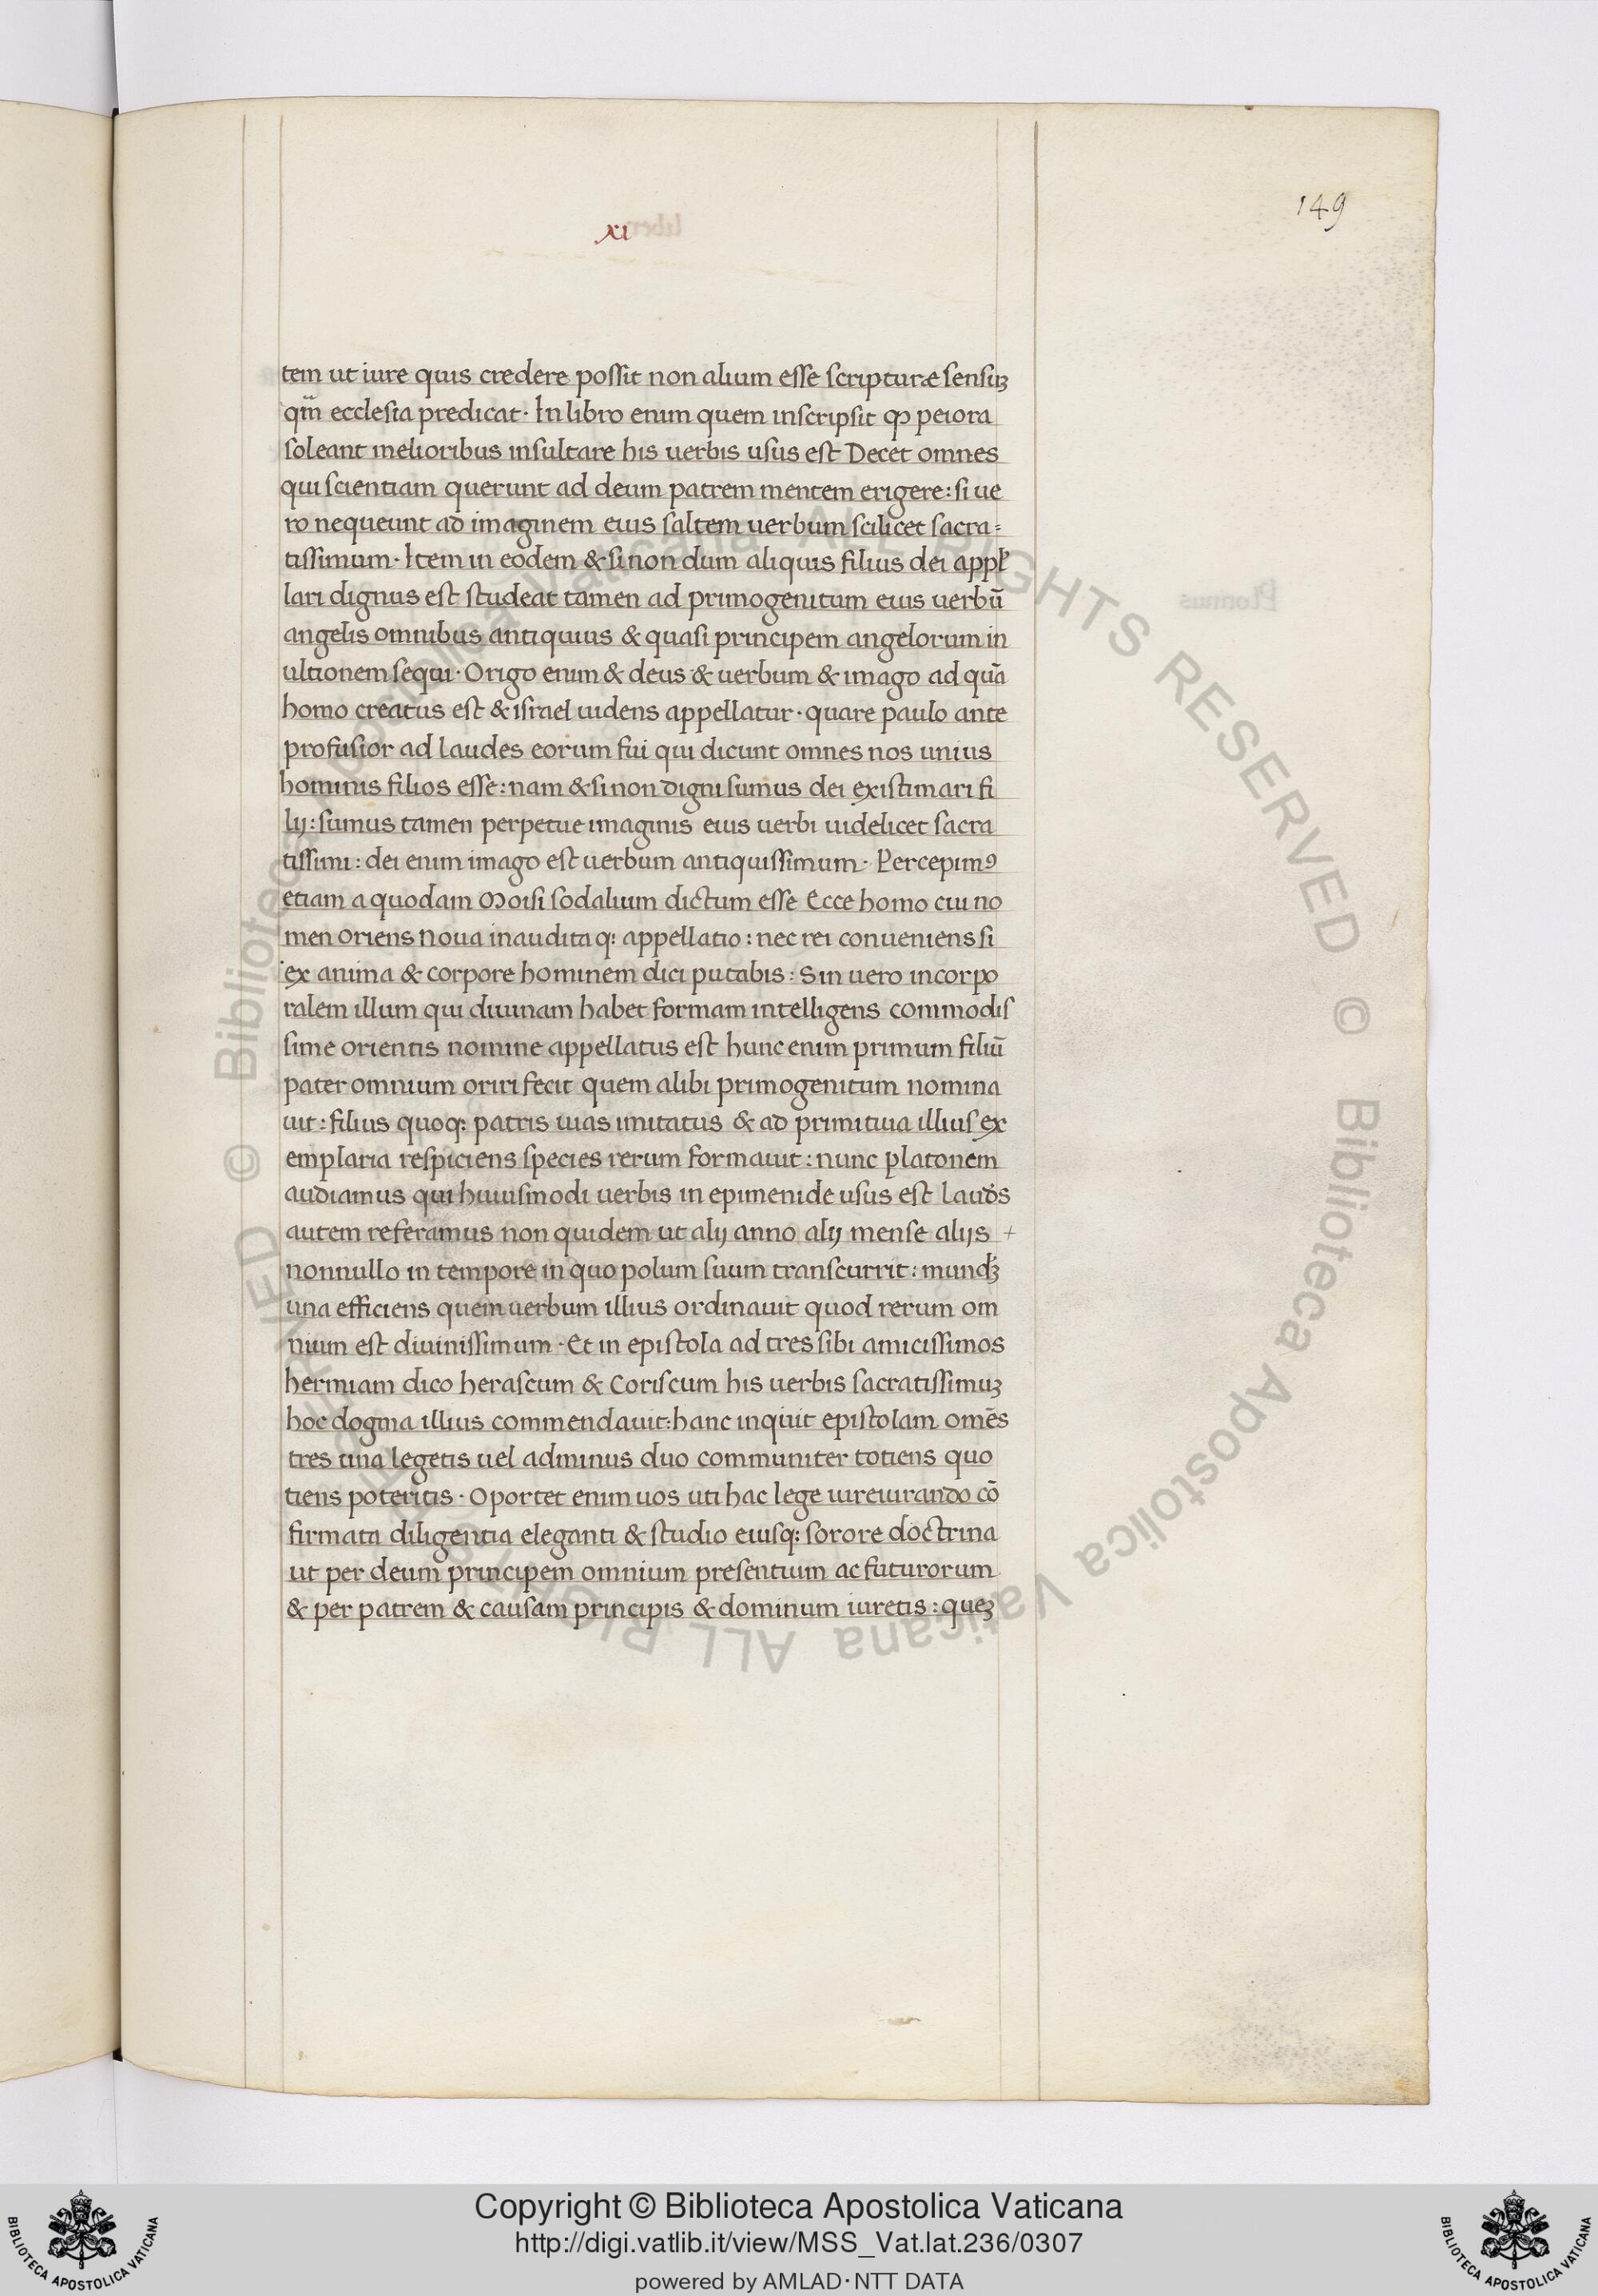 149
xi
tem ut iure quis credere possit non alium esse scripturæ sensuꝫ
qm̄ ecclesia predicat · In libro enim quem inscripsit ꝙ peiora
soleant melioribus insultare his uerbis usus est Decet omnes
qui scientiam querunt ad deum patrem mentem erigere : si ue
ro nequeunt ad imaginem eius saltem uerbum scilicet sacra=
tissimum · Item in eodem & si non dum aliquis filius dei appl̓
lari dignus est studeat tamen ad primogenitum eius uerbū
angelis omnibus antiquius & quasi principem angelorum in
ultionem sequi · Origo enim & deus & uerbum & imago ad quā
homo creatus est & israel uidens appellatur · quare paulo ante
profusior ad laudes eorum fui qui dicunt omnes nos unius
hominis filios esse : nam & si non digni sumus dei existimari fi
lij : sumus tamen perpetue imaginis eius uerbi uidelicet sacra
tissimi : dei enim imago est uerbum antiquissimum · Percepimꝰ
etiam a quodam Moisi sodalium dictum esse Ecce homo cui no
men oriens Noua inauditaq; appellatio : nec rei conueniens si
ex anima & corpore hominem dici putabis : Sin uero incorpo
ralem illum qui diuinam habet formam intelligens commodis
sime orientis nomine appellatus est hunc enim primum filiū
pater omnium oriri fecit quem alibi primogenitum nomina
uit : filius quoq; patris uias imitatus & ad primitiua illius ex
emplaria respiciens species rerum formauit : nunc platonem
audiamus qui huiusmodi uerbis in epimenide usus est Laudes
autem referamus non quidem ut alij anno alij mense alijs +
nonnullo in tempore in quo polum suum transcurrit : mundꝫ
una efficiens quem uerbum illius ordinauit quod rerum om
nium est diuinissimum · Et in epistola ad tres sibi amicissimos
hermiam dico herascum & Coriscum his uerbis sacratissimuꝫ
hoc dogma illius commendauit : hanc inquit epistolam omēs
tres una legetis uel adminus duo communiter totiens quo
tiens poteritis · Oportet enim uos uti hac lege iureiurando cō
firmata diligentia eleganti & studio eiusq; sorore doctrina
ut per deum principem omnium presentium ac futurorum
& per patrem & causam principis & dominum iuretis : queꝫ
© Biblioteca Apostolica Vaticana ALL RIGHTS RESERVED
© Biblioteca Apostolica Vaticana ALL RIGHTS RESERVED
Copyright © Biblioteca Apostolica Vaticana
http://digi.vatlib.it/view/MSS_Vat.lat.236/0307
powered by AMLAD·NTT DATA
BIBLIOTECA APOSTOLICA VATICANA
BIBLIOTECA APOSTOLICA VATICANA